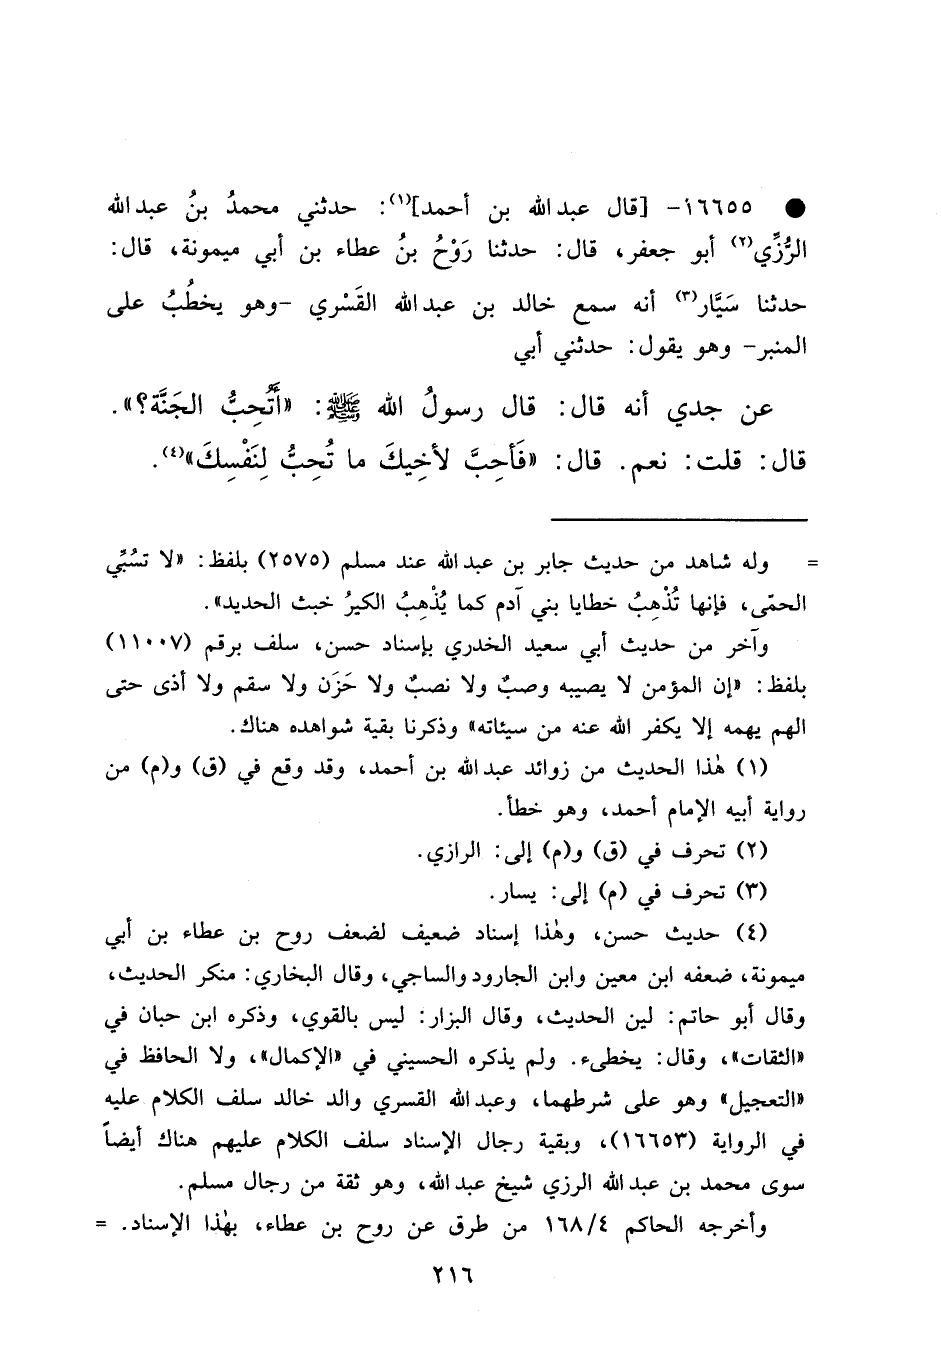 ● ١٦٦٥٥- [قال عبدالله بن أحمد]⁽¹⁾: حدثني محمدُ بنُ عبدالله
الرُّزِّي⁽²⁾ أبو جعفر، قال: حدثنا رَوْحُ بنُ عطاء بن أبي ميمونة، قال:
حدثنا سَيَّار⁽³⁾ أنه سمع خالد بن عبدالله القَسْري -وهو يخطُبُ على
المنبر- وهو يقول: حدثني أبي
عن جدي أنه قال: قال رسولُ الله ﷺ: «أَتُحِبُّ الجَنَّة؟».
قال: قلت: نعم. قال: «فَأَحِبَّ لأخِيكَ ما تُحِبُّ لِنَفْسِكَ»⁽⁴⁾.
= وله شاهد من حديث جابر بن عبدالله عند مسلم (٢٥٧٥) بلفظ: «لا تسُبِّي
الحمّى، فإنها تُذْهِبُ خطايا بني آدم كما يُذْهِبُ الكيرُ خبث الحديد».
وآخر من حديث أبي سعيد الخدري بإسناد حسن، سلف برقم (١١٠٠٧)
بلفظ: «إن المؤمن لا يصيبه وصبٌ ولا نصبٌ ولا حَزَن ولا سقم ولا أذى حتى
الهم يهمه إلا يكفر الله عنه من سيئاته» وذكرنا بقية شواهده هناك.
(١) هٰذا الحديث من زوائد عبدالله بن أحمد، وقد وقع في (ق) و(م) من
رواية أبيه الإمام أحمد، وهو خطأ.
(٢) تحرف في (ق) و(م) إلى: الرازي.
(٣) تحرف في (م) إلى: يسار.
(٤) حديث حسن، وهٰذا إسناد ضعيف لضعف روح بن عطاء بن أبي
ميمونة، ضعفه ابن معين وابن الجارود والساجي، وقال البخاري: منكر الحديث،
وقال أبو حاتم: لين الحديث، وقال البزار: ليس بالقوي، وذكره ابن حبان في
«الثقات»، وقال: يخطىء. ولم يذكره الحسيني في «الإكمال»، ولا الحافظ في
«التعجيل» وهو على شرطهما، وعبدالله القسري والد خالد سلف الكلام عليه
في الرواية (١٦٦٥٣)، وبقية رجال الإسناد سلف الكلام عليهم هناك أيضاً
سوى محمد بن عبدالله الرزي شيخ عبدالله، وهو ثقة من رجال مسلم.
وأخرجه الحاكم ١٦٨/٤ من طرق عن روح بن عطاء، بهٰذا الإسناد. =
٢١٦